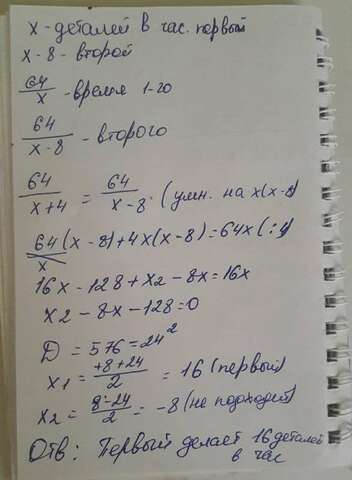 x - деталей в час. первый
x - 8 - второй
64/x - время 1-го
64/x-8 - второго
64/x+4 = 64/x-8 · (умн. на x(x-8)
64(x-8)+4x(x-8)=64x (:4)
x
16x-128+x2-8x=16x
x2-8x-128=0
D = 576=24²
x1 = +8+24/2 = 16 (первый)
x2 = 8-24/2 = -8 (не подходит)
Отв: Первый делает 16 деталей
в час